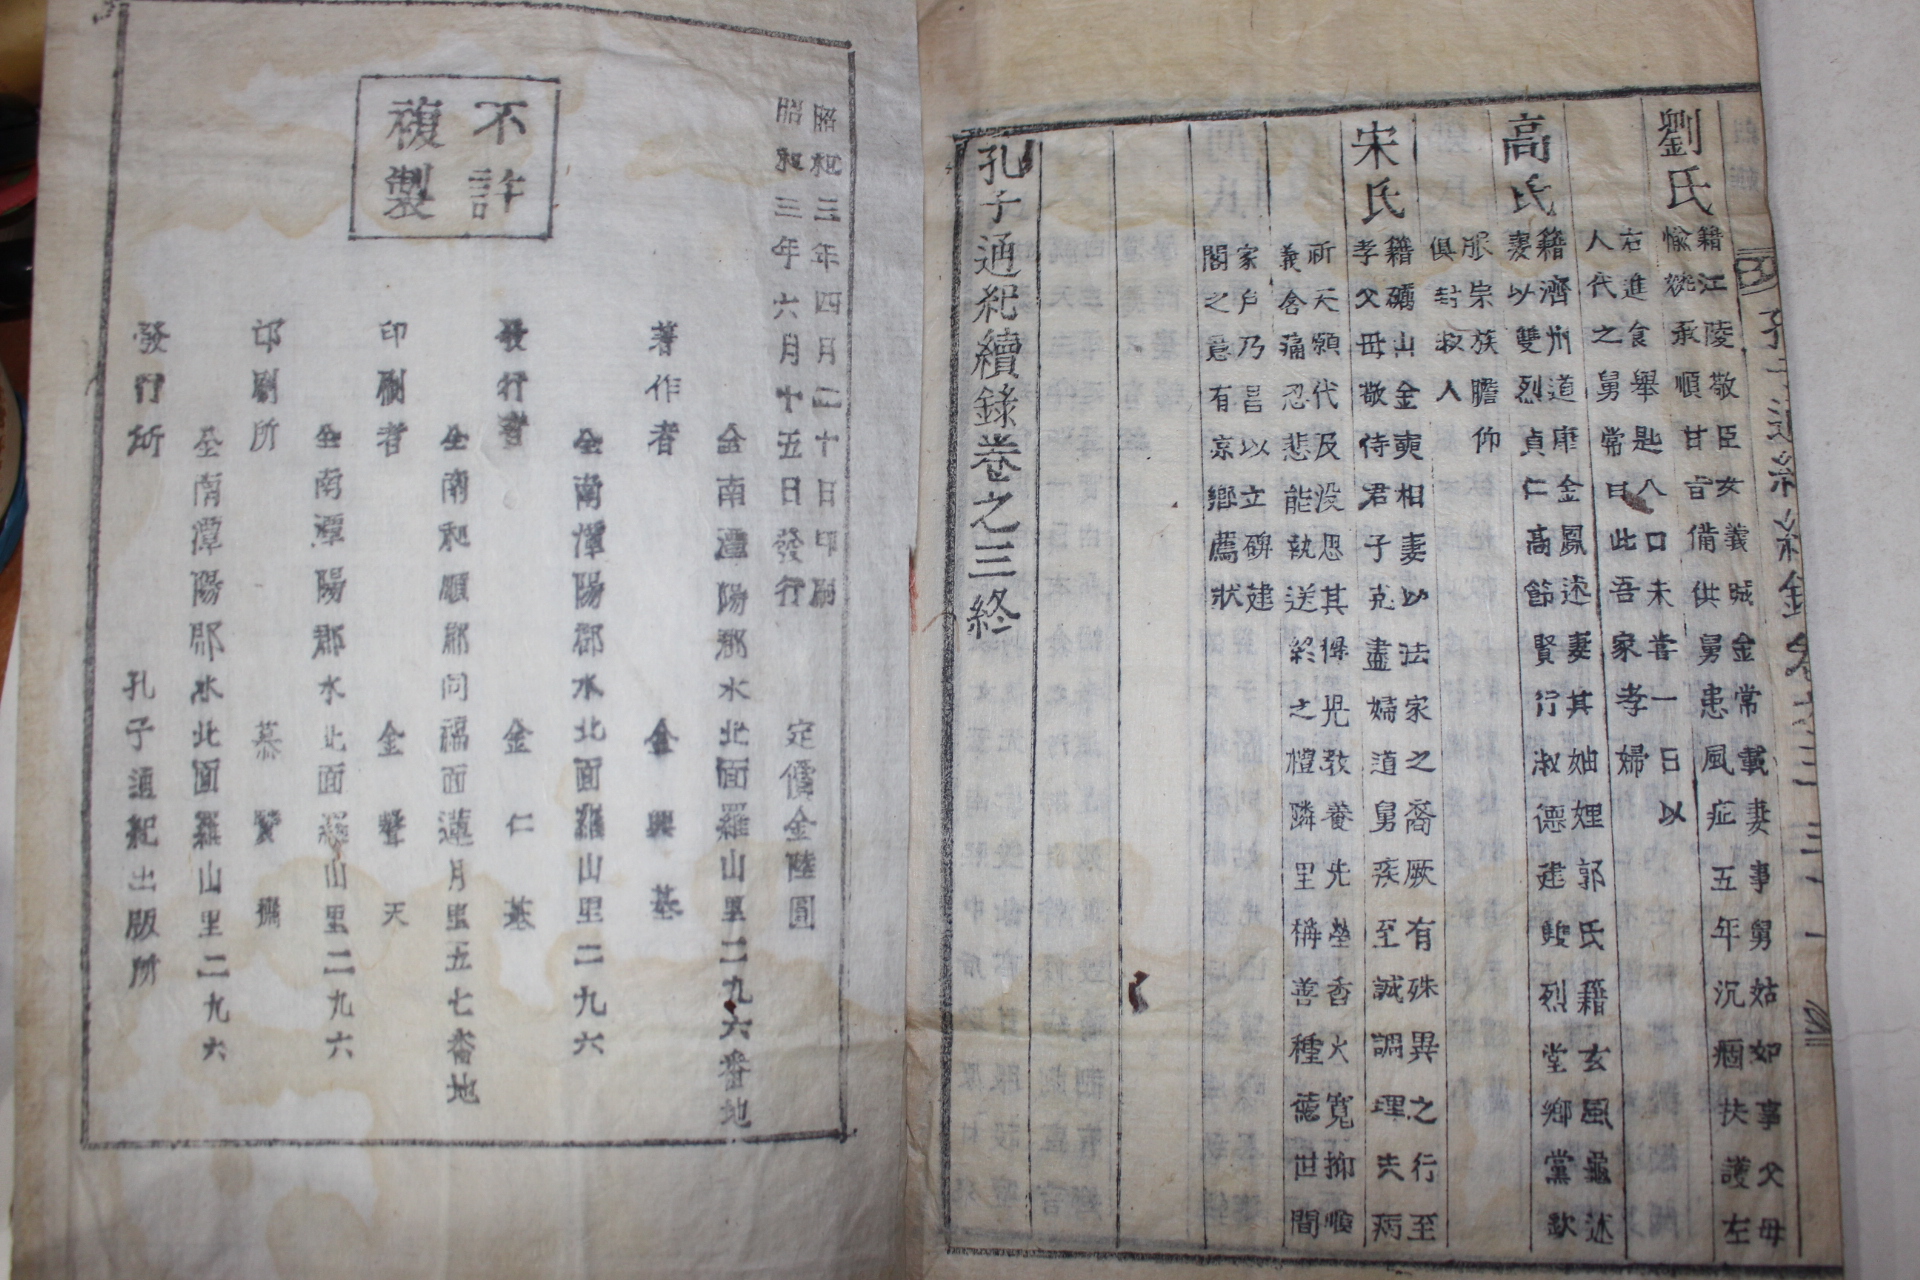 劉氏
籍江陵敬臣女義城金常載妻事舅姑如事父母
愉婉承順甘旨備供舅患風症五年沉痼扶護左
右進食舉匙八口未嘗一日以
人代之舅常曰此吾家孝婦
高氏
籍濟州道康金鳳述妻其妯娌郭氏籍玄風龜述
妻以雙烈貞仁高節賢行淑德建雙烈堂鄉黨欽
服宗族瞻仰
俱封叔人
宋氏
籍礪山金奭相妻以法家之裔厥有殊異之行至
孝父母敬侍君子克盡婦道舅疾至誠調理夫病
祈天願代及没思其得兒敎養先塋香火寬抑順
義舍痛忍悲能執送終之禮隣里稱善種德世間
家戶乃昌以立碑建
閣之意有京鄉薦狀
孔子通紀續錄卷之三終
孔子通紀續錄卷之三
不許
複製
昭和三年四月二十日印刷
昭和三年六月十五日發行
定價金陸圓
全南潭陽郡水北面羅山里二九六番地
著作者 金興基
全南潭陽郡水北面羅山里二九六
發行者 金仁基
全南和順郡同福面蓮月里五七番地
印刷者 金聲天
全南潭陽郡水北面羅山里二九六
印刷所 慕賢彌
全南潭陽郡水北面羅山里二九六
發行所 孔子通紀出版所